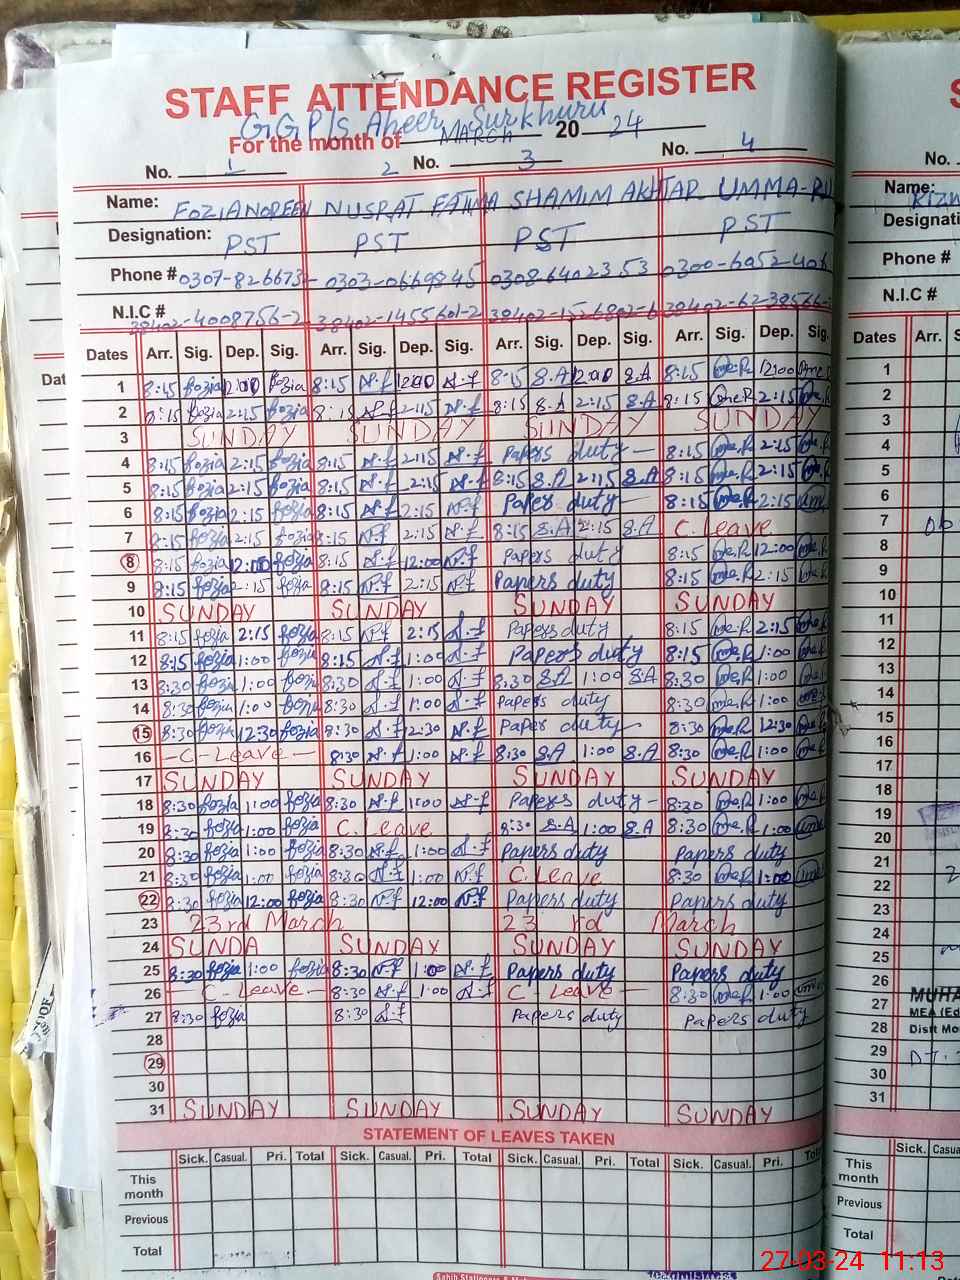 STAFF ATTENDANCE REGISTER
GGP/S Aheer Surkhuru
For the month of MARCH 20 24
No. 1 2 No. 3 No. 4
Name: FOZIA NOREEN NUSRAT FATIMA SHAMIM AKHTAR UMMA-RU
Designation: PST PST PST PST
Phone # 0307-826673 0303-0669845 0308 6402353 0300-6052-406
N.I.C # 38402-4008756-2 38402-1455601-2 38402-1526802-6 38402-62-38566-
Dates Arr. Sig. Dep. Sig. Arr. Sig. Dep. Sig. Arr. Sig. Dep. Sig. Arr. Sig. Dep. Sig.
1 8:15 fozia 12:00 fozia 8:15 N.f 12:00 N.f 8:15 S.A 12:00 S.A 8:15 Ume.R 12:00 Ume.
2 8:15 fozia 2:15 fozia 8:15 N.f 2:15 N.f 8:15 S.A 2:15 S.A 8:15 Ume.R 2:15 Ume.
3 SUNDAY SUNDAY SUNDAY SUNDAY
4 8:15 fozia 2:15 fozia 8:15 N.f 2:15 N.f Papers duty — 8:15 Ume.R 2:15 Ume.
5 8:15 fozia 2:15 fozia 8:15 N.f 2:15 N.f 8:15 S.A 2:15 S.A 8:15 Ume.R 2:15 Ume.
6 8:15 fozia 2:15 fozia 8:15 N.f 2:15 N.f Paper duty 8:15 Ume.R 2:15 Ume.
7 8:15 fozia 2:15 fozia 8:15 N.f 2:15 N.f 8:15 S.A 2:15 S.A C.Leave
8 8:15 fozia 12:00 fozia 8:15 N.f 12:00 N.f Papers duty 8:15 Ume.R 12:00 Ume.
9 8:15 fozia 2:15 fozia 8:15 N.f 2:15 N.f Papers duty 8:15 Ume.R 2:15 Ume.
10 SUNDAY SUNDAY SUNDAY SUNDAY
11 8:15 fozia 2:15 fozia 8:15 N.f 2:15 N.f Papers duty 8:15 Ume.R 2:15 Ume.
12 8:15 fozia 1:00 fozia 8:15 N.f 1:00 N.f Papers duty 8:15 Ume.R 1:00 Ume.
13 8:30 fozia 1:00 fozia 8:30 N.f 1:00 N.f 8:30 S.A 1:00 S.A 8:30 Ume.R 1:00 Ume.
14 8:30 fozia 1:00 fozia 8:30 N.f 1:00 N.f Papers duty 8:30 Ume.R 1:00 Ume.
15 8:30 fozia 12:30 fozia 8:30 N.f 12:30 N.f Paper duty 8:30 Ume.R 12:30 Ume.
16 — C-Leave — 8:30 N.f 1:00 N.f 8:30 S.A 1:00 S.A 8:30 Ume.R 1:00 Ume.
17 SUNDAY SUNDAY SUNDAY SUNDAY
18 8:30 fozia 1:00 fozia 8:30 N.f 1:00 N.f Papers duty — 8:30 Ume.R 1:00 Ume.
19 8:30 fozia 1:00 fozia C.Leave 8:30 S.A 1:00 S.A 8:30 Ume.R 1:00 Ume.
20 8:30 fozia 1:00 fozia 8:30 N.f 1:00 N.f Papers duty Papers duty
21 8:30 fozia 1:00 fozia 8:30 N.f 1:00 N.f C.Leave 8:30 Ume.R 1:00 Ume.
22 8:30 fozia 12:00 fozia 8:30 N.f 12:00 N.f Papers duty Papers duty
23 23rd March 23 rd March
24 SUNDA SUNDAY SUNDAY SUNDAY
25 8:30 fozia 1:00 fozia 8:30 N.f 1:00 N.f Papers duty Papers duty
26 C-Leave — 8:30 N.f 1:00 N.f C-Leave — 8:30 Ume.R 1:00 Ume.
27 8:30 fozia 8:30 N.f Papers duty Papers duty
28
29
30
31 SUNDAY SUNDAY SUNDAY SUNDAY
STATEMENT OF LEAVES TAKEN
Sick. Casual. Pri. Total Sick. Casual. Pri. Total Sick. Casual. Pri. Total Sick. Casual. Pri. Total
This month
Previous
Total
No.
Name:
Designati
Phone #
N.I.C #
Dates Arr.
1
2
3
4
5
6
7
8
9
10
11
12
13
14
15
16
17
18
19
20
21
22
23
24
25
26
27
28
29
30
31
MUHA
MEA (Ed
Distt Mo
Sick. Casua
This month
Previous
Total
27-03-24 11:13